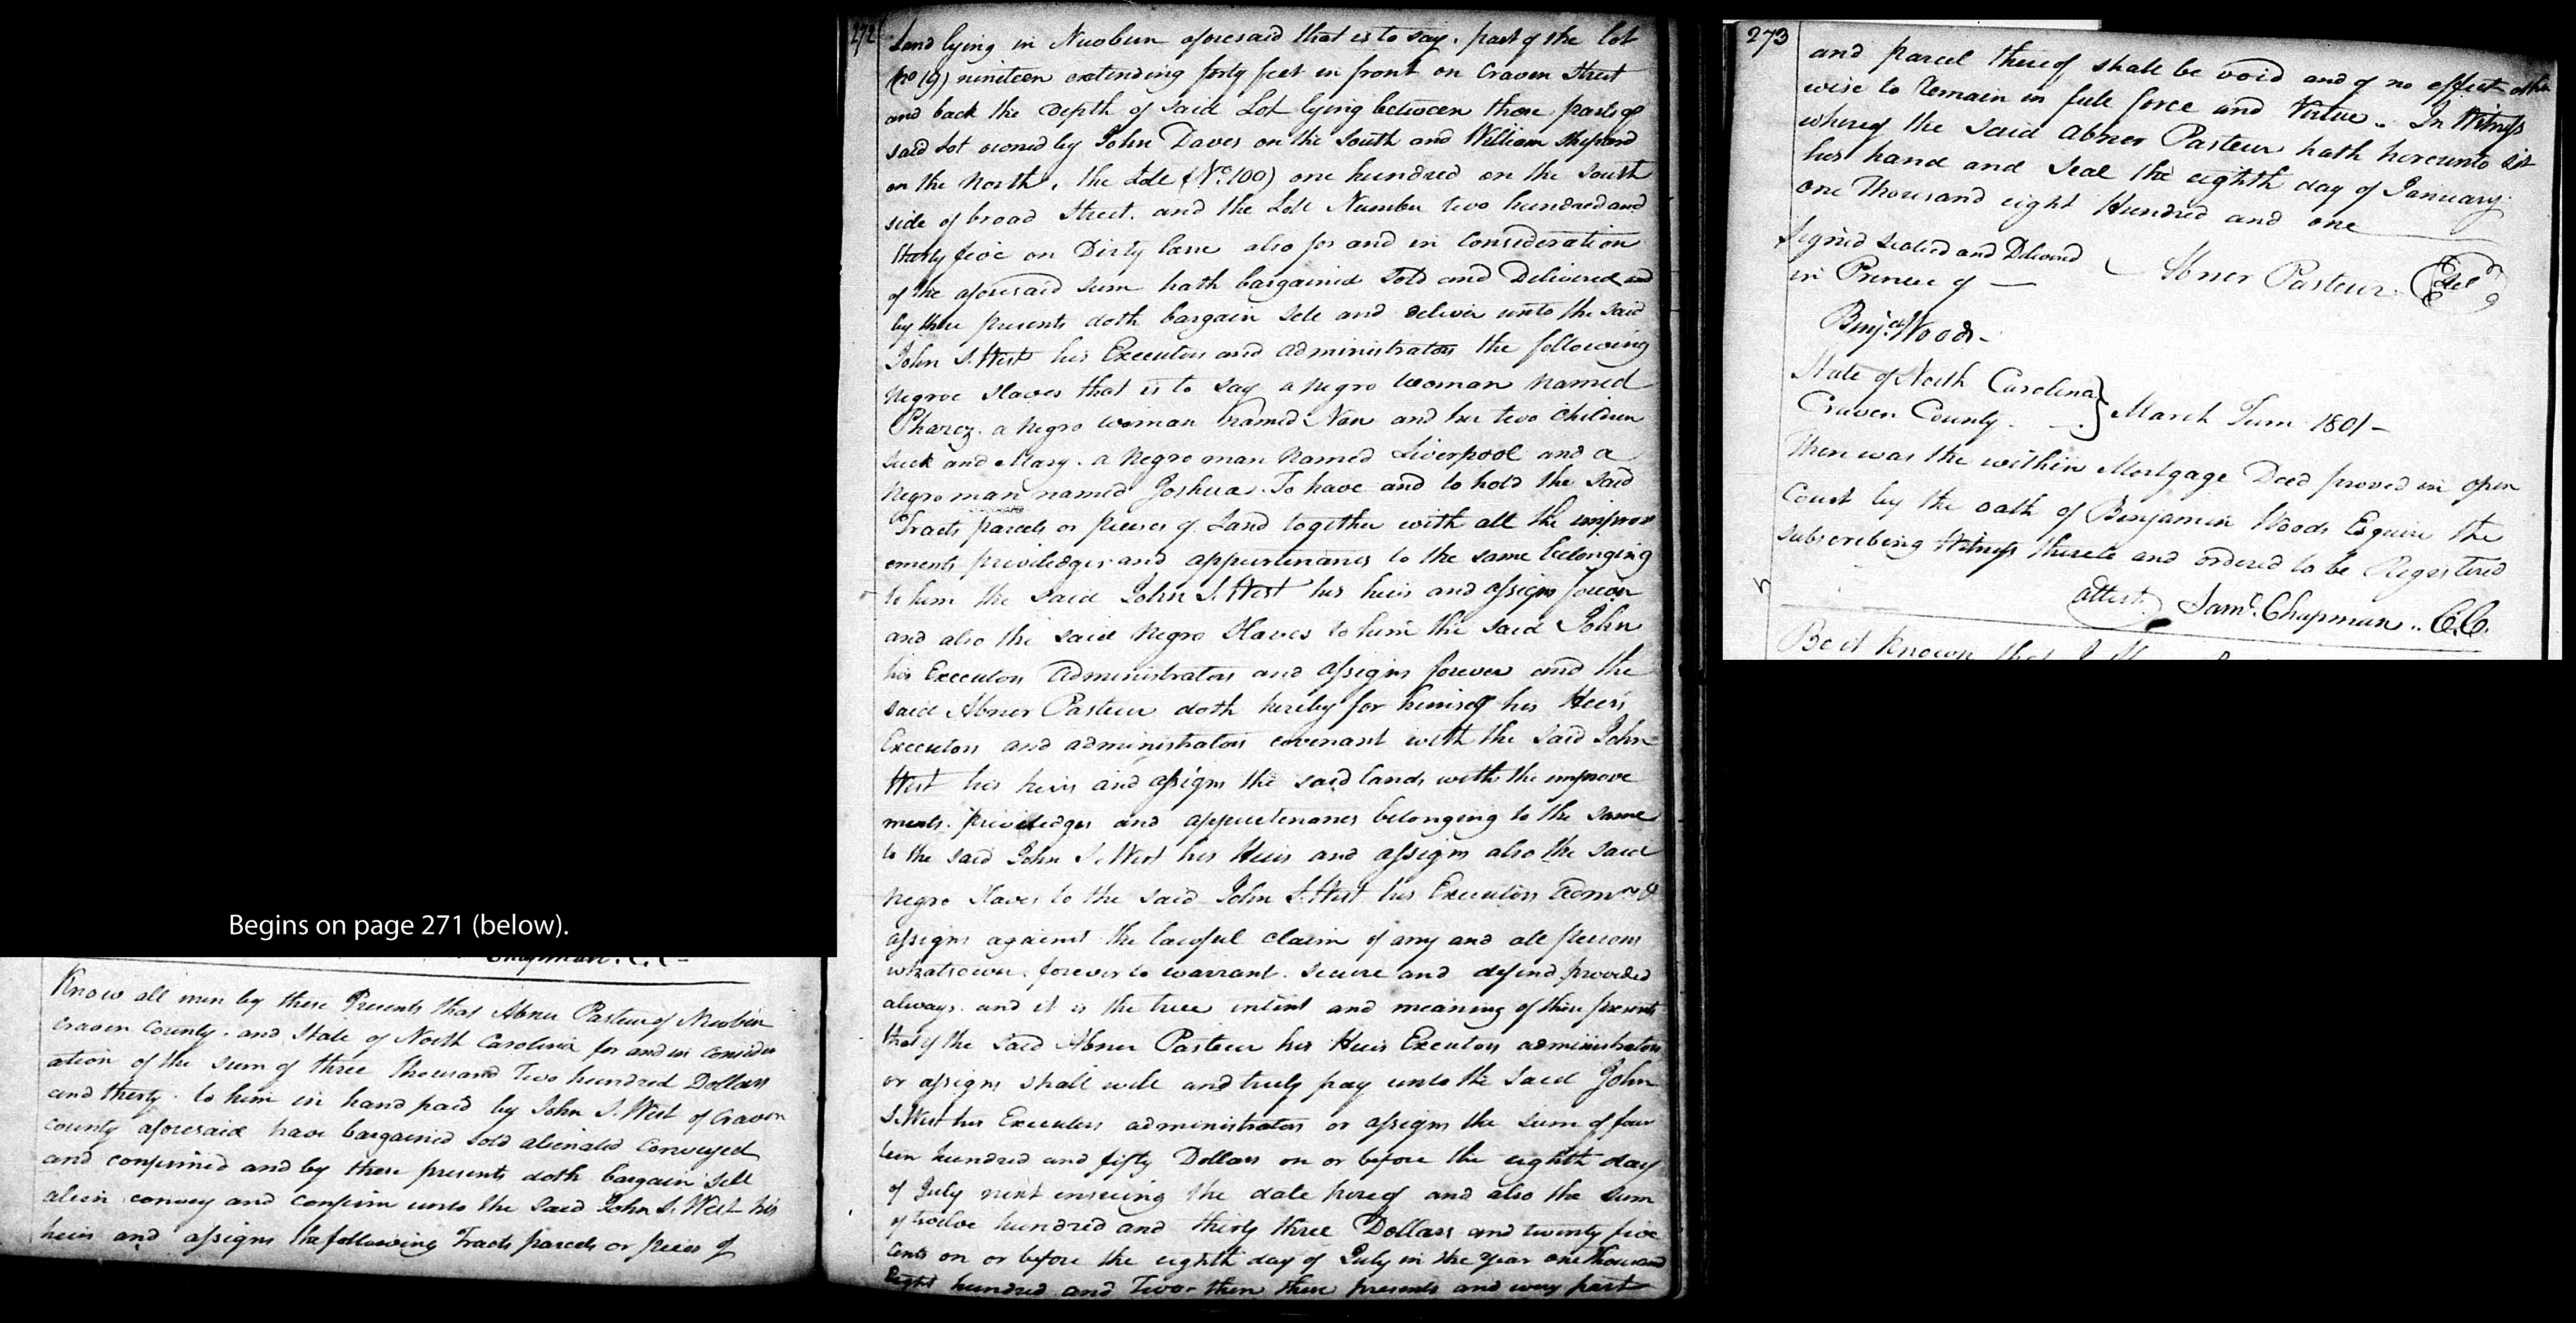 Begins on page 271 (below).
Chapman. C. C
Know all men by these Presents that Abner Pasteur of Newbern
Craven County. and State of North Carolina for and in consider
ation of the sum of three thousand Two hundred Dollars
and thirty. to him in hand paid by John S. West of Craven
County aforesaid have bargained sold aliended conveyed
and confirmed and by these presents doth bargain sell
alien convey and confirm unto the said John S. West his
heirs and assigns the following Tracts parcels or peces of
272
Land lying in Newbern aforesaid that is to say. part of the lot
(no 19) nineteen extending forty feet in front on Craven Street
and back the depth of said Lot lying between those parts of
said Lot owned by John Daves on the South and William Shepard
on the North, the Lott (No. 100) one hundred on the South
side of broad Street. and the Lott Number two hundred and
thirty five on Dirty lane also for and in consideration
of the aforesaid sum hath bargained sold and Delivered and
by these presents doth bargain sell and deliver unto the said
John S. West his Executors and administrators the following
negroe Slaves that is to say a negro woman named
Pharoz. a negro woman named Nan and her two children
Suck and Mary. a negro man named Liverpool and a
negro man named Joshua. To have and to hold the said
Tracts parcels or pieces of Land together with all the improv
ements priviledges and appurtenances to the same belonging
to him the said John S. West his heirs and assigns forever
and also the said negro Slaves to him the said John
his Executors administrators and assigns forever and the
said Abner Pasteur doth hereby for himself his Heirs
Executors and administrators covenant with the said John
West his heirs and assigns the said lands with the improve
ments. priviledges and appurtenances belonging to the same
to the said John S. West his Heirs and assigns also the said
negro Slaves to the said John S. West his Executors Admrs &
assigns against the lawful claim of any and all persons
whatsoever. forever to warrant. secure and defend provided
always. and it is the true intent and meaning of these presents
that if the said Abner Pasteur his Heirs Executors administrators
or assigns shall well and truly pay unto the said John
S. West his Executors administrators or assigns the sum of four
teen hundred and fifty Dollars on or before the eighth day
of July next ensueing the date hereof and also the sum
of twelve hundred and thirty three Dollars and twenty five
Cents on or before the eighth day of July in the year one thousand
Eight hundred and Two. then these presents and every part
273
and parcel thereof shall be void and of no effect other
wise to remain in full force and Virtue. In Witness
whereof the said Abner Pasteur hath hereunto set
his hand and Seal the eighth day of January
one thousand eight Hundred and one
Signed Sealed and Delivered
in Presence of
Abner Pasteur Seal
Benja. Woods
State of North Carolina
Craven County
March Term 1801
Then was the within Mortgage Deed proved in open
Court by the oath of Benjamin Woods Esquire the
subscribing Witness thereto and ordered to be Registered
attest. Saml. Chapman .. C.C.
Be it known that I